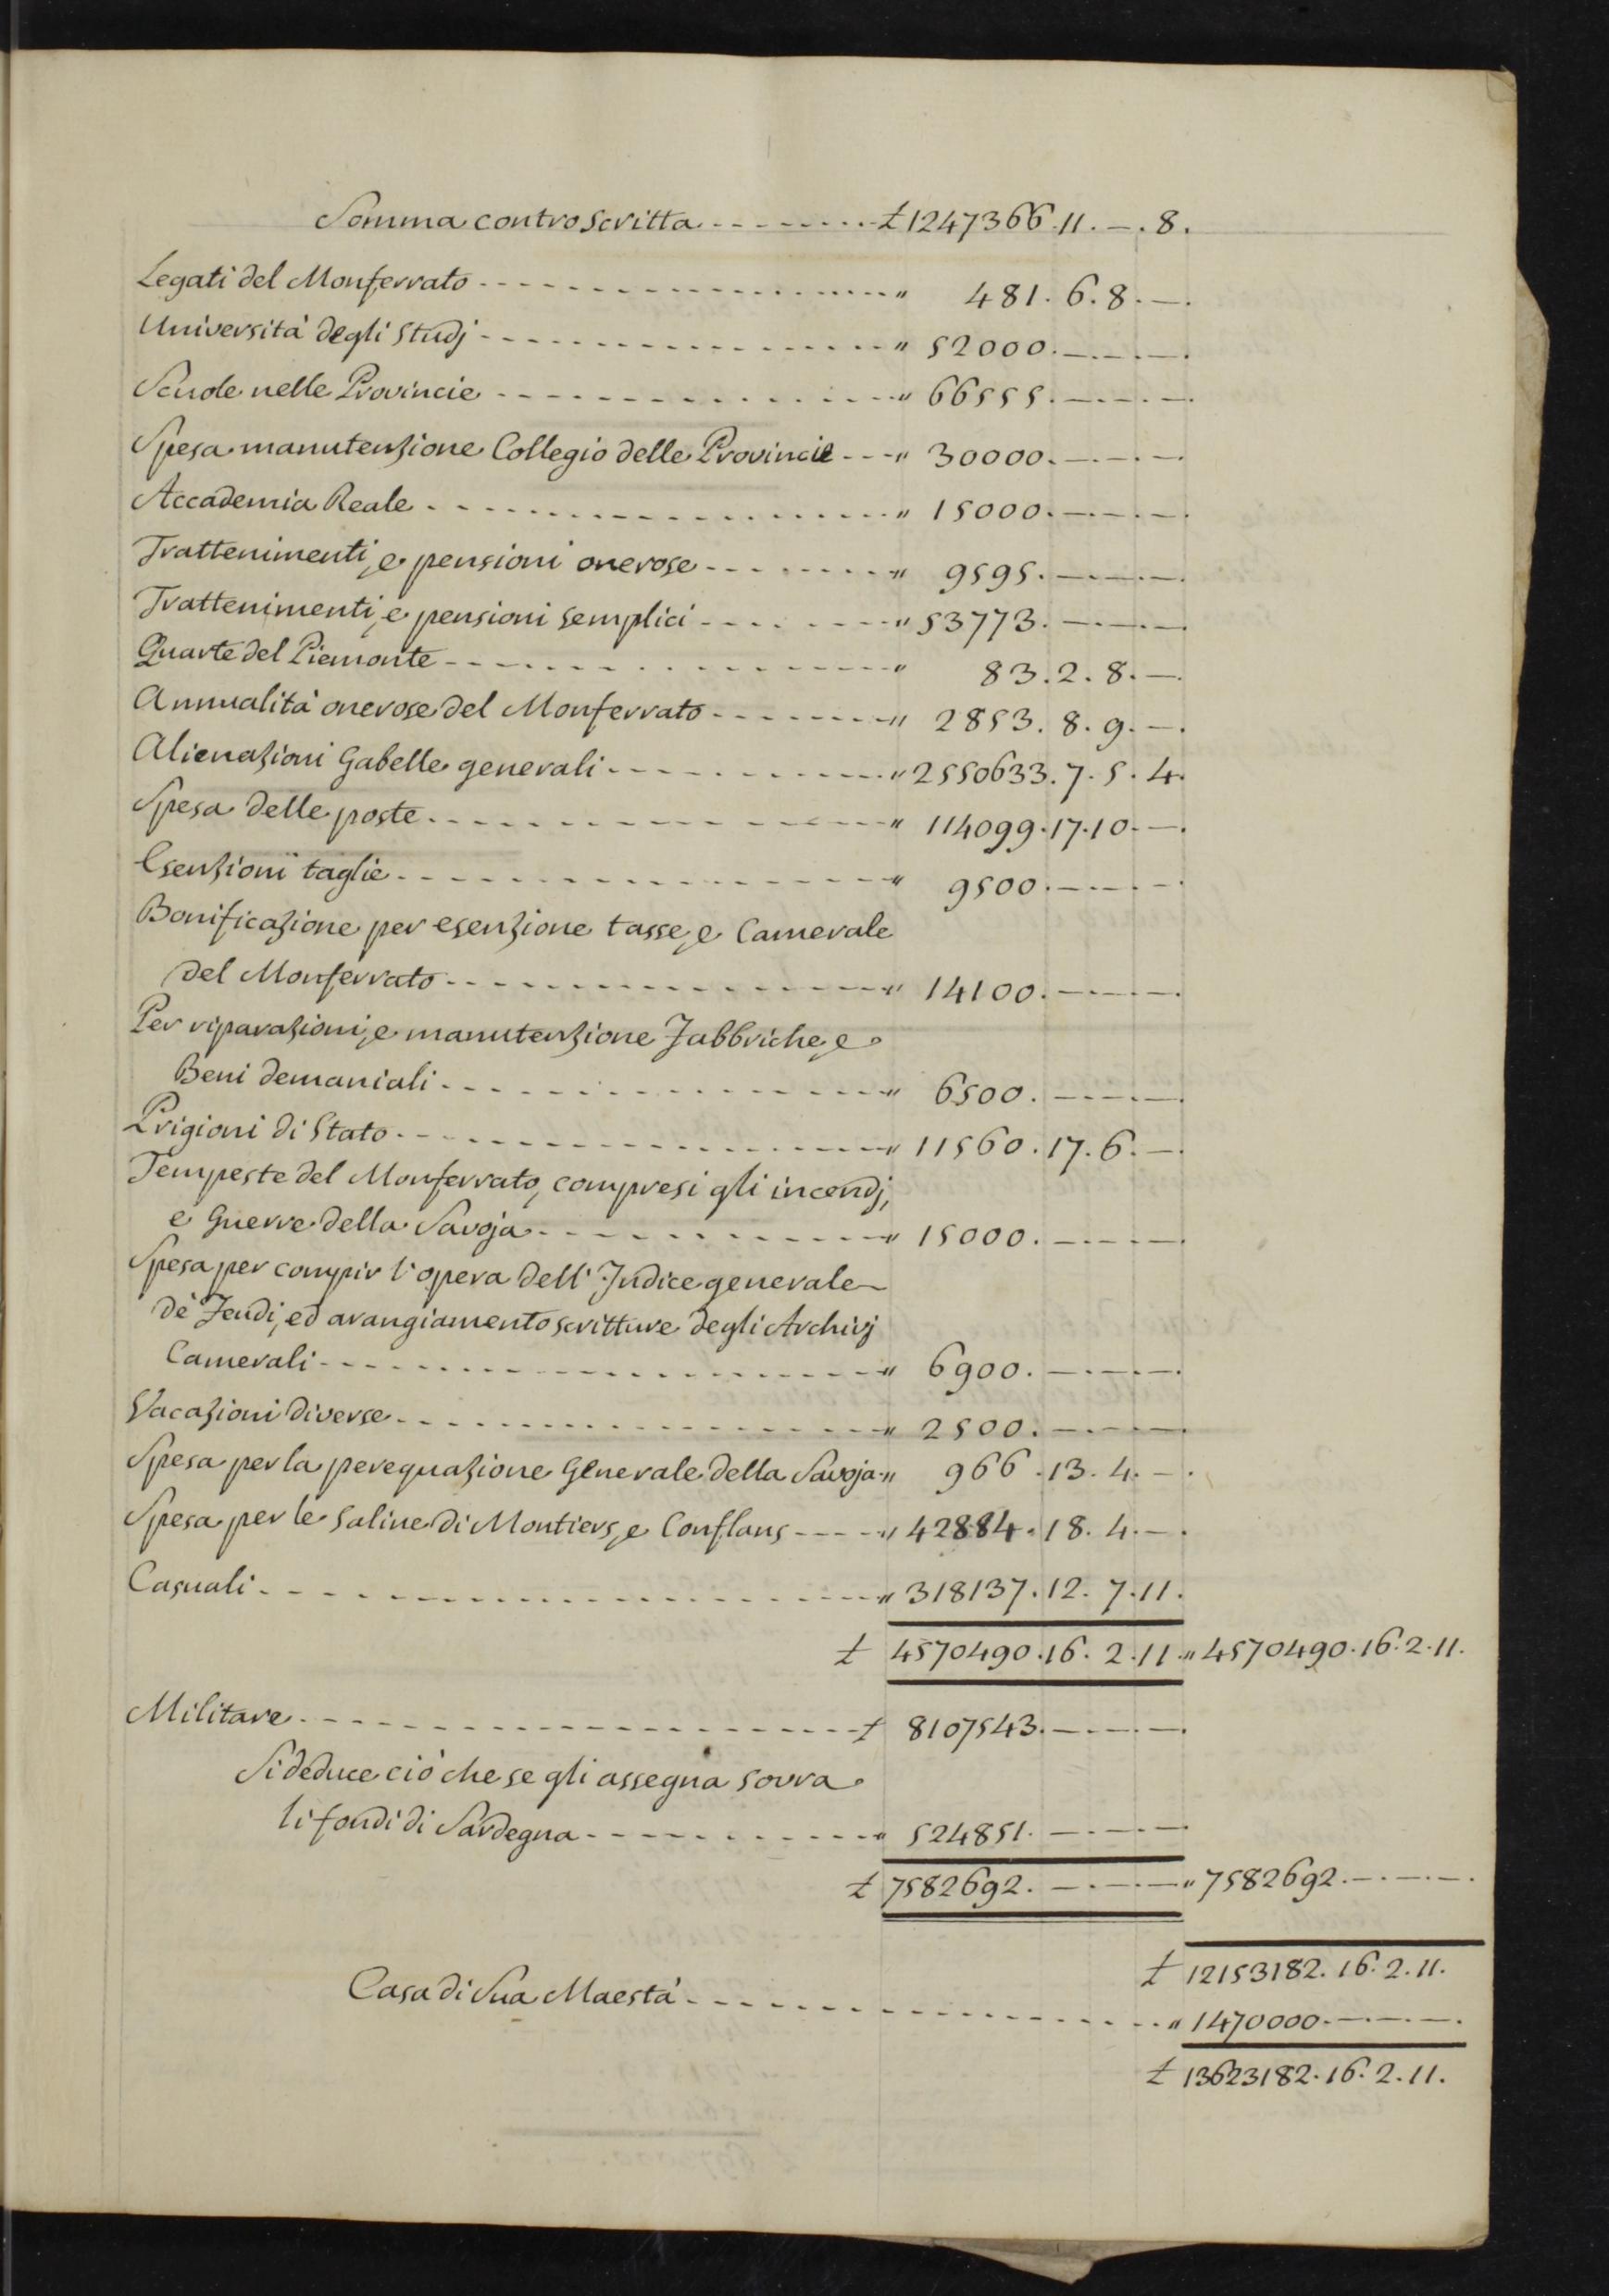 Somma controscritta - - - - - - - - - £ 1247366. 11. —. 8.
Legati del Monferrato - - - - - - - - - " 481. 6. 8. —.
Università degli Studj - - - - - - - - - " 52000. —. —. —.
Scuole nelle Provincie - - - - - - - - - " 66555. —. —. —.
Spesa manutenzione Collegio delle Provincie - - - " 30000. —. —. —
Accademia Reale - - - - - - - - - " 15000. —. —. —.
Trattenimenti, e pensioni onerose - - - - - - - - - " 9595. —. —. —.
Trattenimenti, e pensioni semplici - - - - - - - - - " 53773. —. —. —
Quarte del Piemonte - - - - - - - - - " 83. 2. 8. —.
Annualità onerose del Monferrato - - - - - - - - - " 2853. 8. 9. —.
Alienazioni Gabelle generali - - - - - - - - - " 2550633. 7. 5. 4.
Spesa delle poste - - - - - - - - - " 114099. 17. 10. —.
Esenzioni taglie - - - - - - - - - " 9500. —. —. —.
Bonificazione per esenzione tasse, e Camerale
del Monferrato - - - - - - - - - " 14100. —. —. —.
Per riparazioni, e manutenzione Fabbriche, e
Beni demaniali - - - - - - - - - " 6500. —. —. —.
Prigioni di Stato - - - - - - - - - " 11560. 17. 6. —.
Tempeste del Monferrato, compresi gli incendj,
e Guerre della Savoja - - - - - - - - - " 15000. —. —. —
Spesa per compir l'opera dell'Indice generale
de' Feudi, ed arangiamento scritture degli Archivj
Camerali - - - - - - - - - " 6900. —. —. —.
Vacazioni diverse - - - - - - - - - " 2500. —. —. —
Spesa per la perequazione Generale della Savoja " 966. 13. 4. —.
Spesa per le Saline di Moutiers, e Conflans - - - - " 42884. 18. 4. —.
Casuali - - - - - - - - - " 318137. 12. 7. 11.
£ 4570490. 16. 2. 11. " 4570490. 16. 2. 11.
Militare - - - - - - - - - £ 8107543. —. —. —.
Si deduce ciò che se gli assegna sovra
li fondi di Sardegna - - - - - - - - - " 524851. —. —. —
£ 7582692. —. —. — " 7582692. —. —. —.
£ 12153182. 16. 2. 11.
Casa di Sua Maestà - - - - - - - - - " 1470000. —. —. —.
£ 13623182. 16. 2. 11.